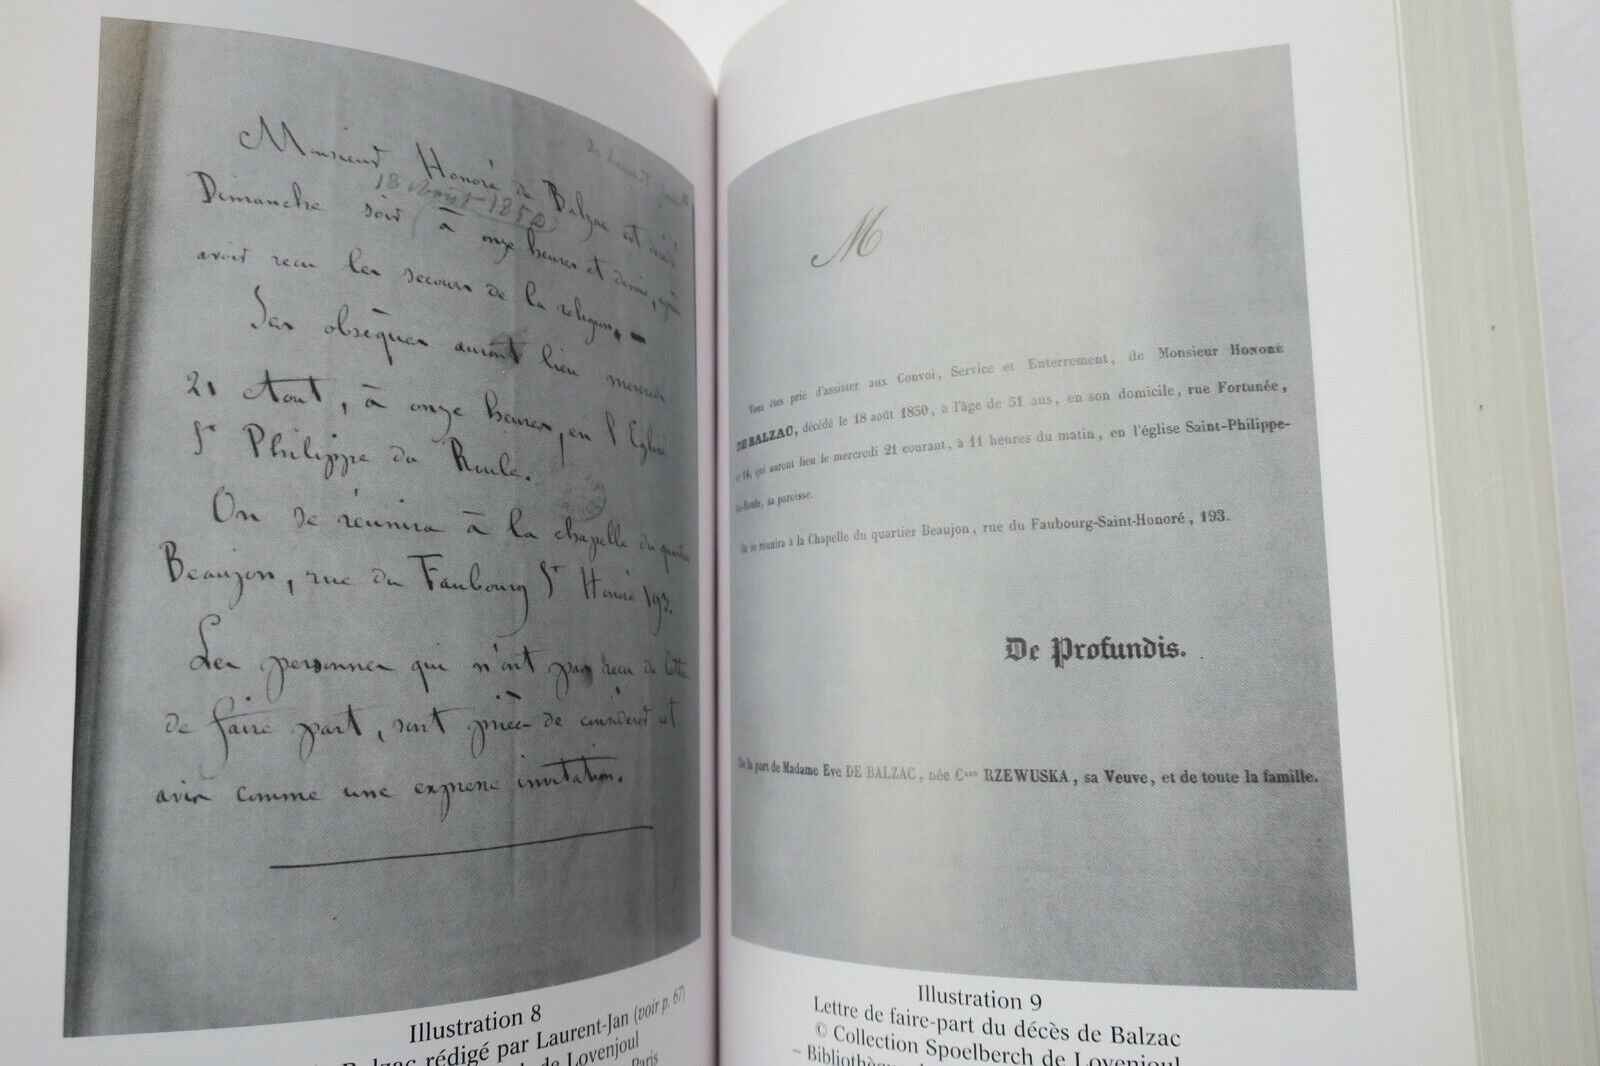 Monsieur Honoré de Balzac est décédé
18 Août - 1850
Dimanche soir à onze heures et demie, après
avoir reçu les secours de la religion. —
Ses obsèques auront lieu mercredi
21 Aout, à onze heures, en l'Eglise
St Philippe du Roule.
On se réunira à la chapelle du quartier
Beaujon, rue du Faubourg St Honoré 193.
Les personnes qui n'ont pas reçu de lettre
de faire part, sont priées de considérer cet
avis comme une expresse invitation.
Illustration 8
Balzac rédigé par Laurent-Jan (voir p. 67)
de Lovenjoul
Paris
M
Vous êtes prié d'assister aux Convoi, Service et Enterrement, de Monsieur HONORÉ
DE BALZAC, décédé le 18 août 1850, à l'âge de 51 ans, en son domicile, rue Fortunée,
n° 14, qui auront lieu le mercredi 21 courant, à 11 heures du matin, en l'église Saint-Philippe-
du-Roule, sa paroisse.
On se réunira à la Chapelle du quartier Beaujon, rue du Faubourg-Saint-Honoré, 193.
De Profundis.
De la part de Madame Eve DE BALZAC, née Csse RZEWUSKA, sa Veuve, et de toute la famille.
Illustration 9
Lettre de faire-part du décès de Balzac
© Collection Spoelberch de Lovenjoul
– Bibliothèque